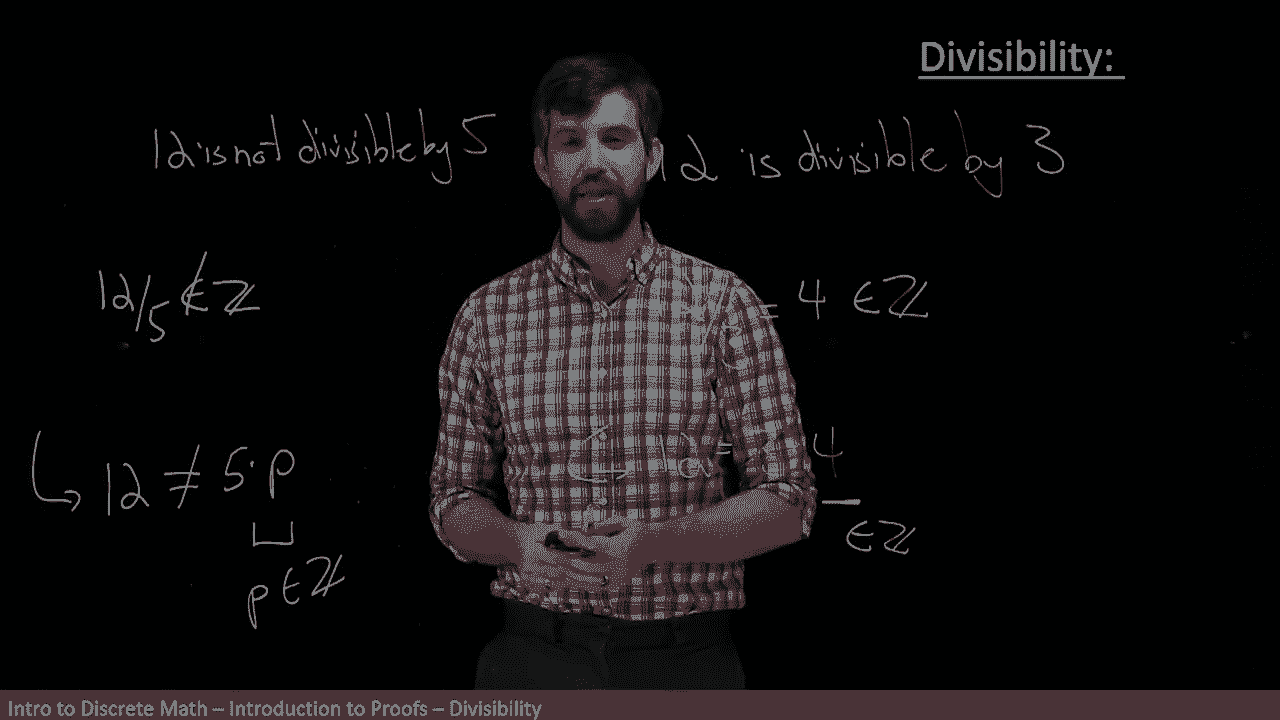 Divisibility:
12 is not divisible by 5
12 is divisible by 3
12/5 ∉ ℤ
= 4 ∈ ℤ
↳ 12 ≠ 5·p
↪ 12 = 3 · 4
p ∈ ℤ
∈ ℤ
Intro to Discrete Math – Introduction to Proofs – Divisibility